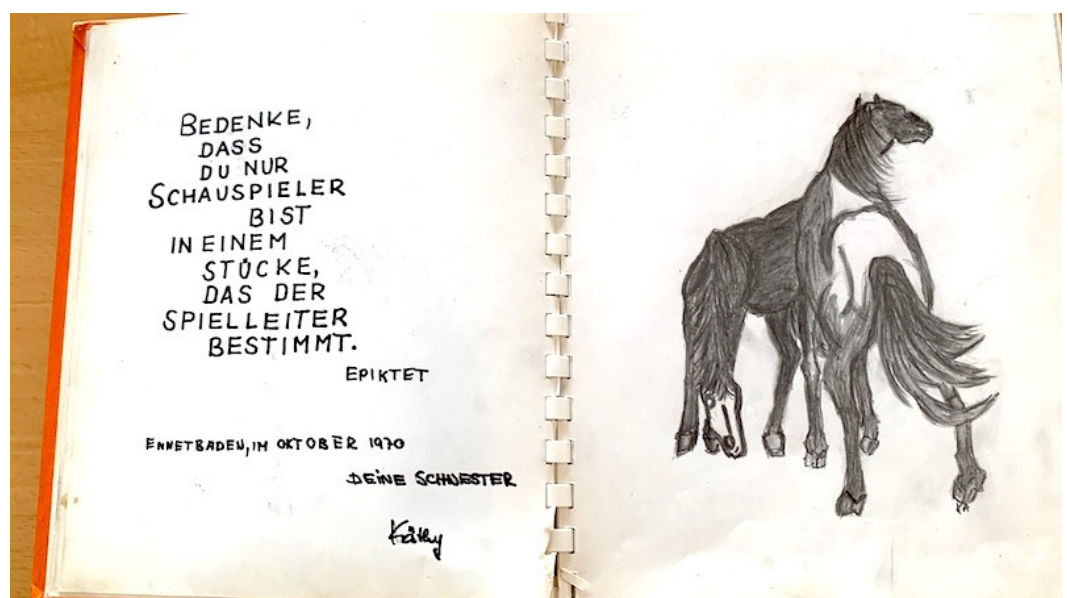 BEDENKE,
DASS
DU NUR
SCHAUSPIELER
BIST
IN EINEM
STÜCKE,
DAS DER
SPIELLEITER
BESTIMMT.
EPIKTET
ENNETBADEN, IM OKTOBER 1970
DEINE SCHWESTER
Käthy